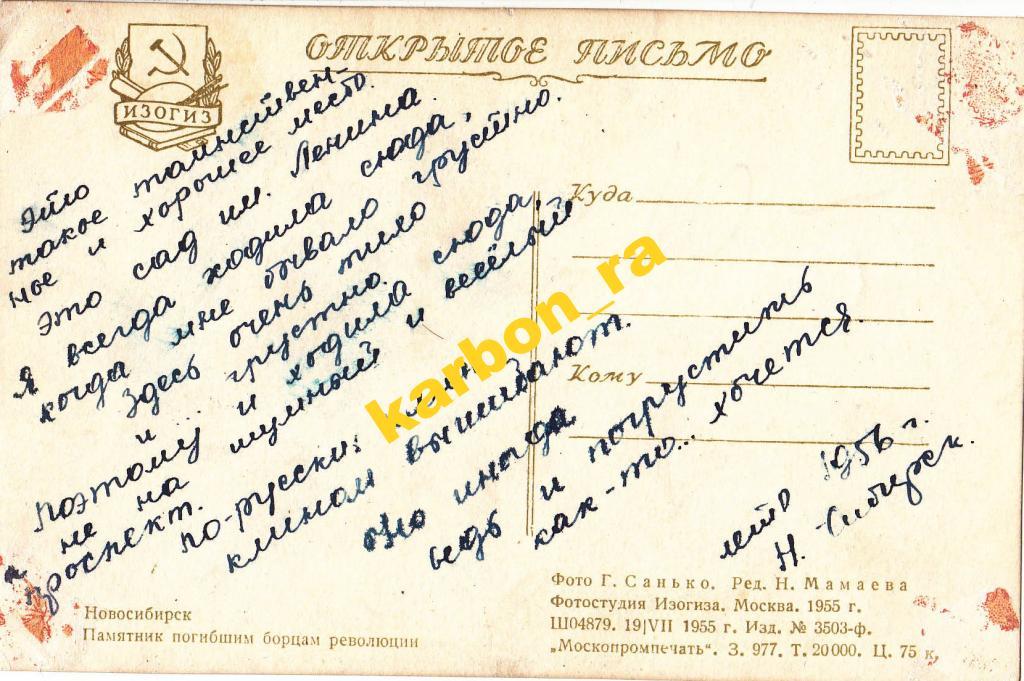 ОТКРЫТОЕ ПИСЬМО
ИЗОГИЗ
Это
такое таинствен-
ное и хорошее место.
Это сад им. Ленина.
Я всегда ходила сюда,
когда мне бывало грустно.
Здесь очень тихо
и... грустно.
Поэтому и ходила сюда,
не на шумный и весёлый
проспект.
по-русски: клин
клином вышибают.
Но иногда
ведь и погрустить
как-то... хочется.
лето 1956 г.
Н.-Сибирск.
Куда
Кому
karbon_ra
Новосибирск
Памятник погибшим борцам революции
Фото Г. Санько. Ред. Н. Мамаева
Фотостудия Изогиза. Москва. 1955 г.
Ш04879. 19|VII 1955 г. Изд. № 3503-ф.
„Москопромпечать“. З. 977. Т. 20000. Ц. 75 к,